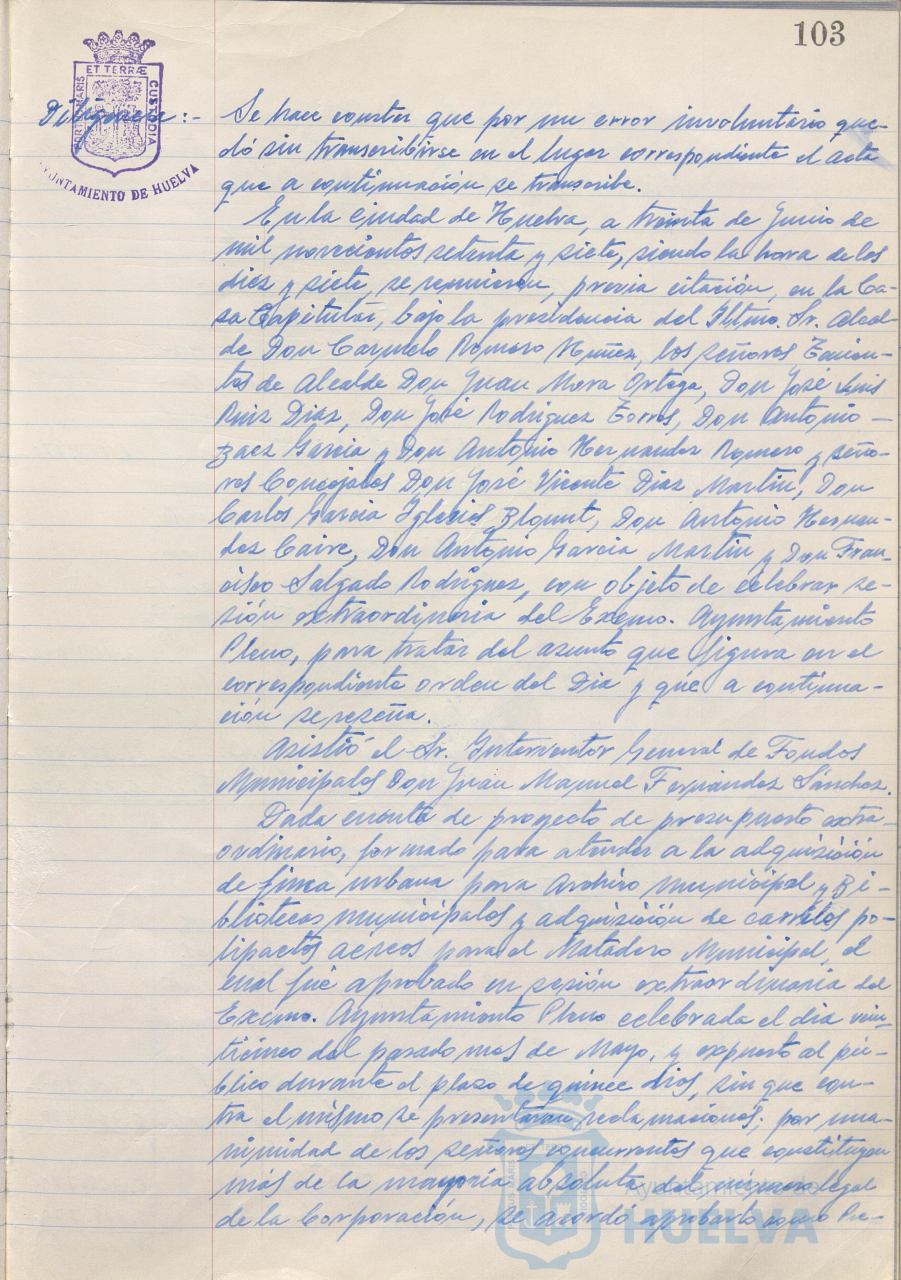 103
PORTUS MARIS ET TERRÆ CUSTODIA
AYUNTAMIENTO DE HUELVA
Diligencia:- Se hace constar que por un error involuntario que-
dó sin transcribirse en el lugar correspondiente el acta
que a continuación se transcribe.
En la Ciudad de Huelva, a treinta de Junio de
mil novecientos setenta y siete, siendo la hora de las
diez y siete, se reunieron, previa citación, en la Ca-
sa Capitular, bajo la presidencia del Iltmo. Sr. Alcal-
de Don Carmelo Romero Núñez, los señores Tenien-
tes de Alcalde Don Juan Mora Ortega, Don José Luis
Ruiz Diaz, Don José Rodriguez Torres, Don Antonio -
Baez Garcia y Don Antonio Hernandez Romero y seño-
res Concejales Don José Vicente Diaz Martin, Don
Carlos Garcia Iglesias Blount, Don Antonio Hernan-
dez Caire, Don Antonio Garcia Martin y Don Fran-
cisco Salgado Rodriguez, con objeto de celebrar se-
sión extraordinaria del Excmo. Ayuntamiento
Pleno, para tratar del asunto que figura en el
correspondiente orden del Dia y que a continua-
ción se reseña.
Asistió el Sr. Interventor General de Fondos
Municipales Don Juan Manuel Fernández Sánchez.
Dada cuenta de proyecto de presupuesto extra-
ordinario, formado para atender a la adquisición
de finca urbana para Archivo Municipal y Bi-
bliotecas municipales y adquisición de carriles po-
lipactos aéreos para el Matadero Municipal, el
cual fué aprobado en sesión extraordinaria del
Excmo. Ayuntamiento Pleno celebrada el dia vein-
ticinco del pasado mes de Mayo, y expuesto al pú-
blico durante el plazo de quince dias, sin que con-
tra el mismo se presentaran reclamaciones; por una-
nimidad de los señores concurrentes que constituyen
más de la mayoría absoluta del número legal
de la Corporación, se acordó aprobarlo como Pre-
Ayuntamiento de
HUELVA